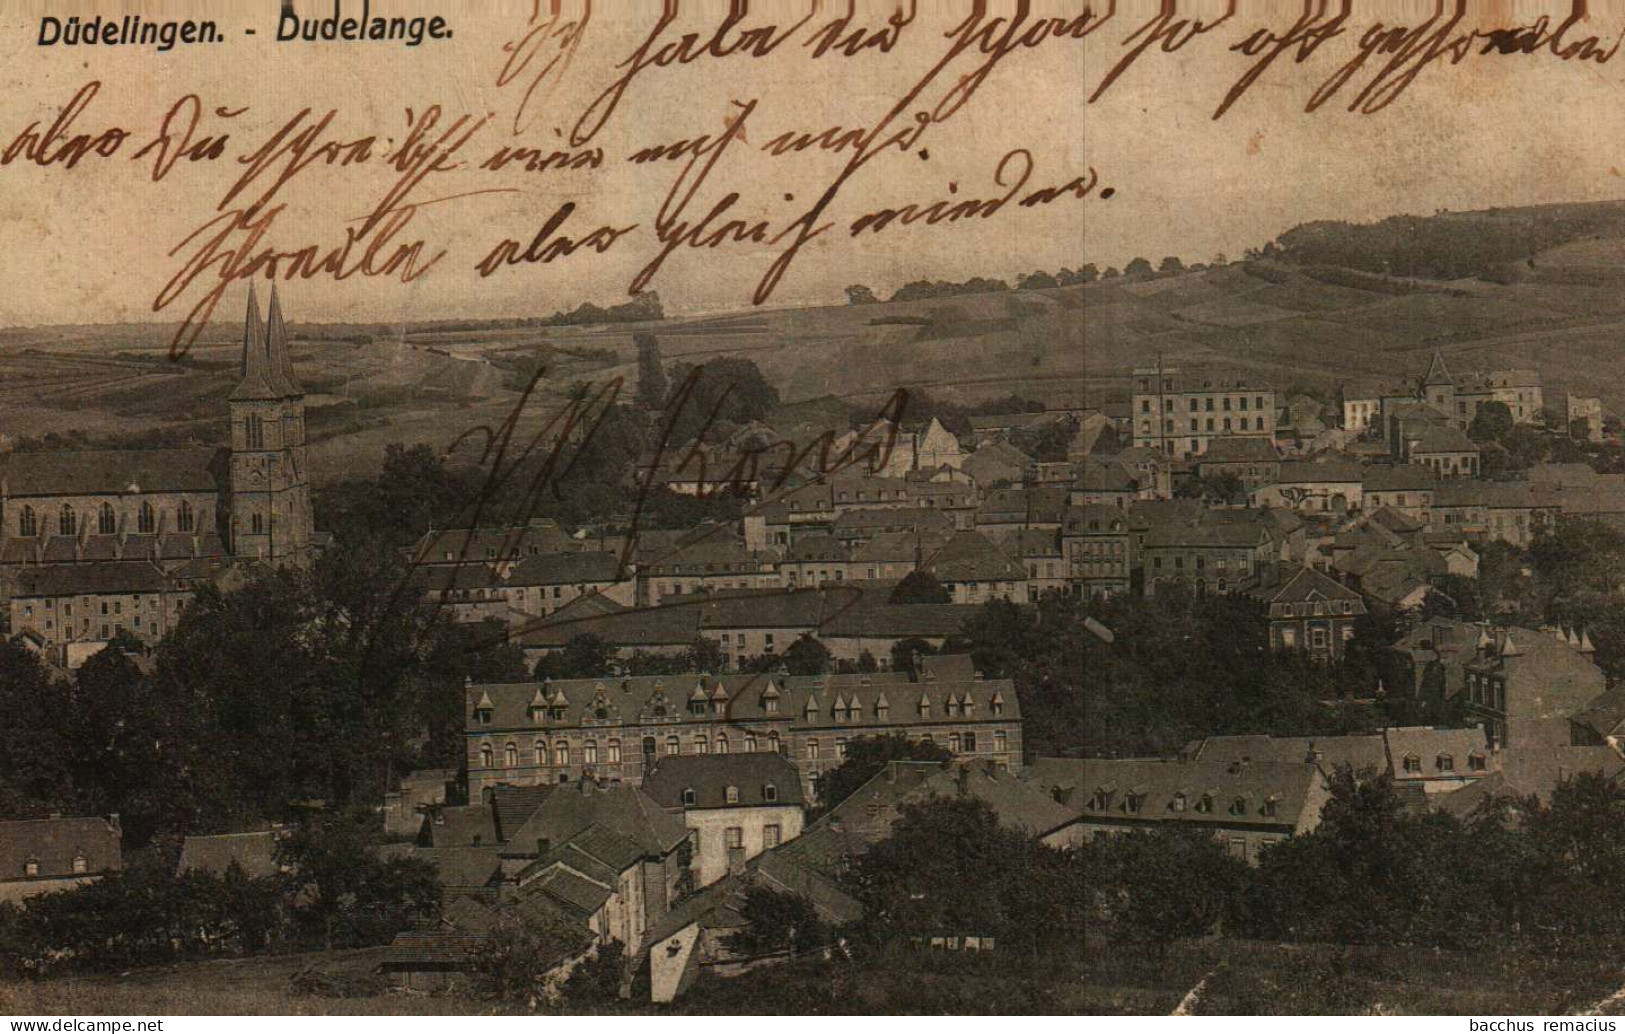 Düdelingen. - Dudelange.
Ich habe dir schon so oft geschrieben
aber Du schreibst mir nich mehr.
schreibe aber gleich wieder.
bacchus remacius